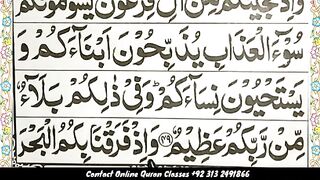 وَاِذْ نَجَّيْنٰكُمْ مِّنْ اٰلِ فِرْعَوْنَ يَسُوْمُوْنَكُمْ
سُوْٓءَ الْعَذَابِ يُذَبِّحُوْنَ اَبْنَآءَكُمْ وَ
يَسْتَحْيُوْنَ نِسَآءَكُمْ ؕ وَفِيْ ذٰلِكُمْ بَلَآءٌ
مِّنْ رَّبِّكُمْ عَظِيْمٌ ﴿۴۹﴾ وَاِذْ فَرَقْنَا بِكُمُ الْبَحْرَ
Contact Online Quran Classes +92 313 2491866